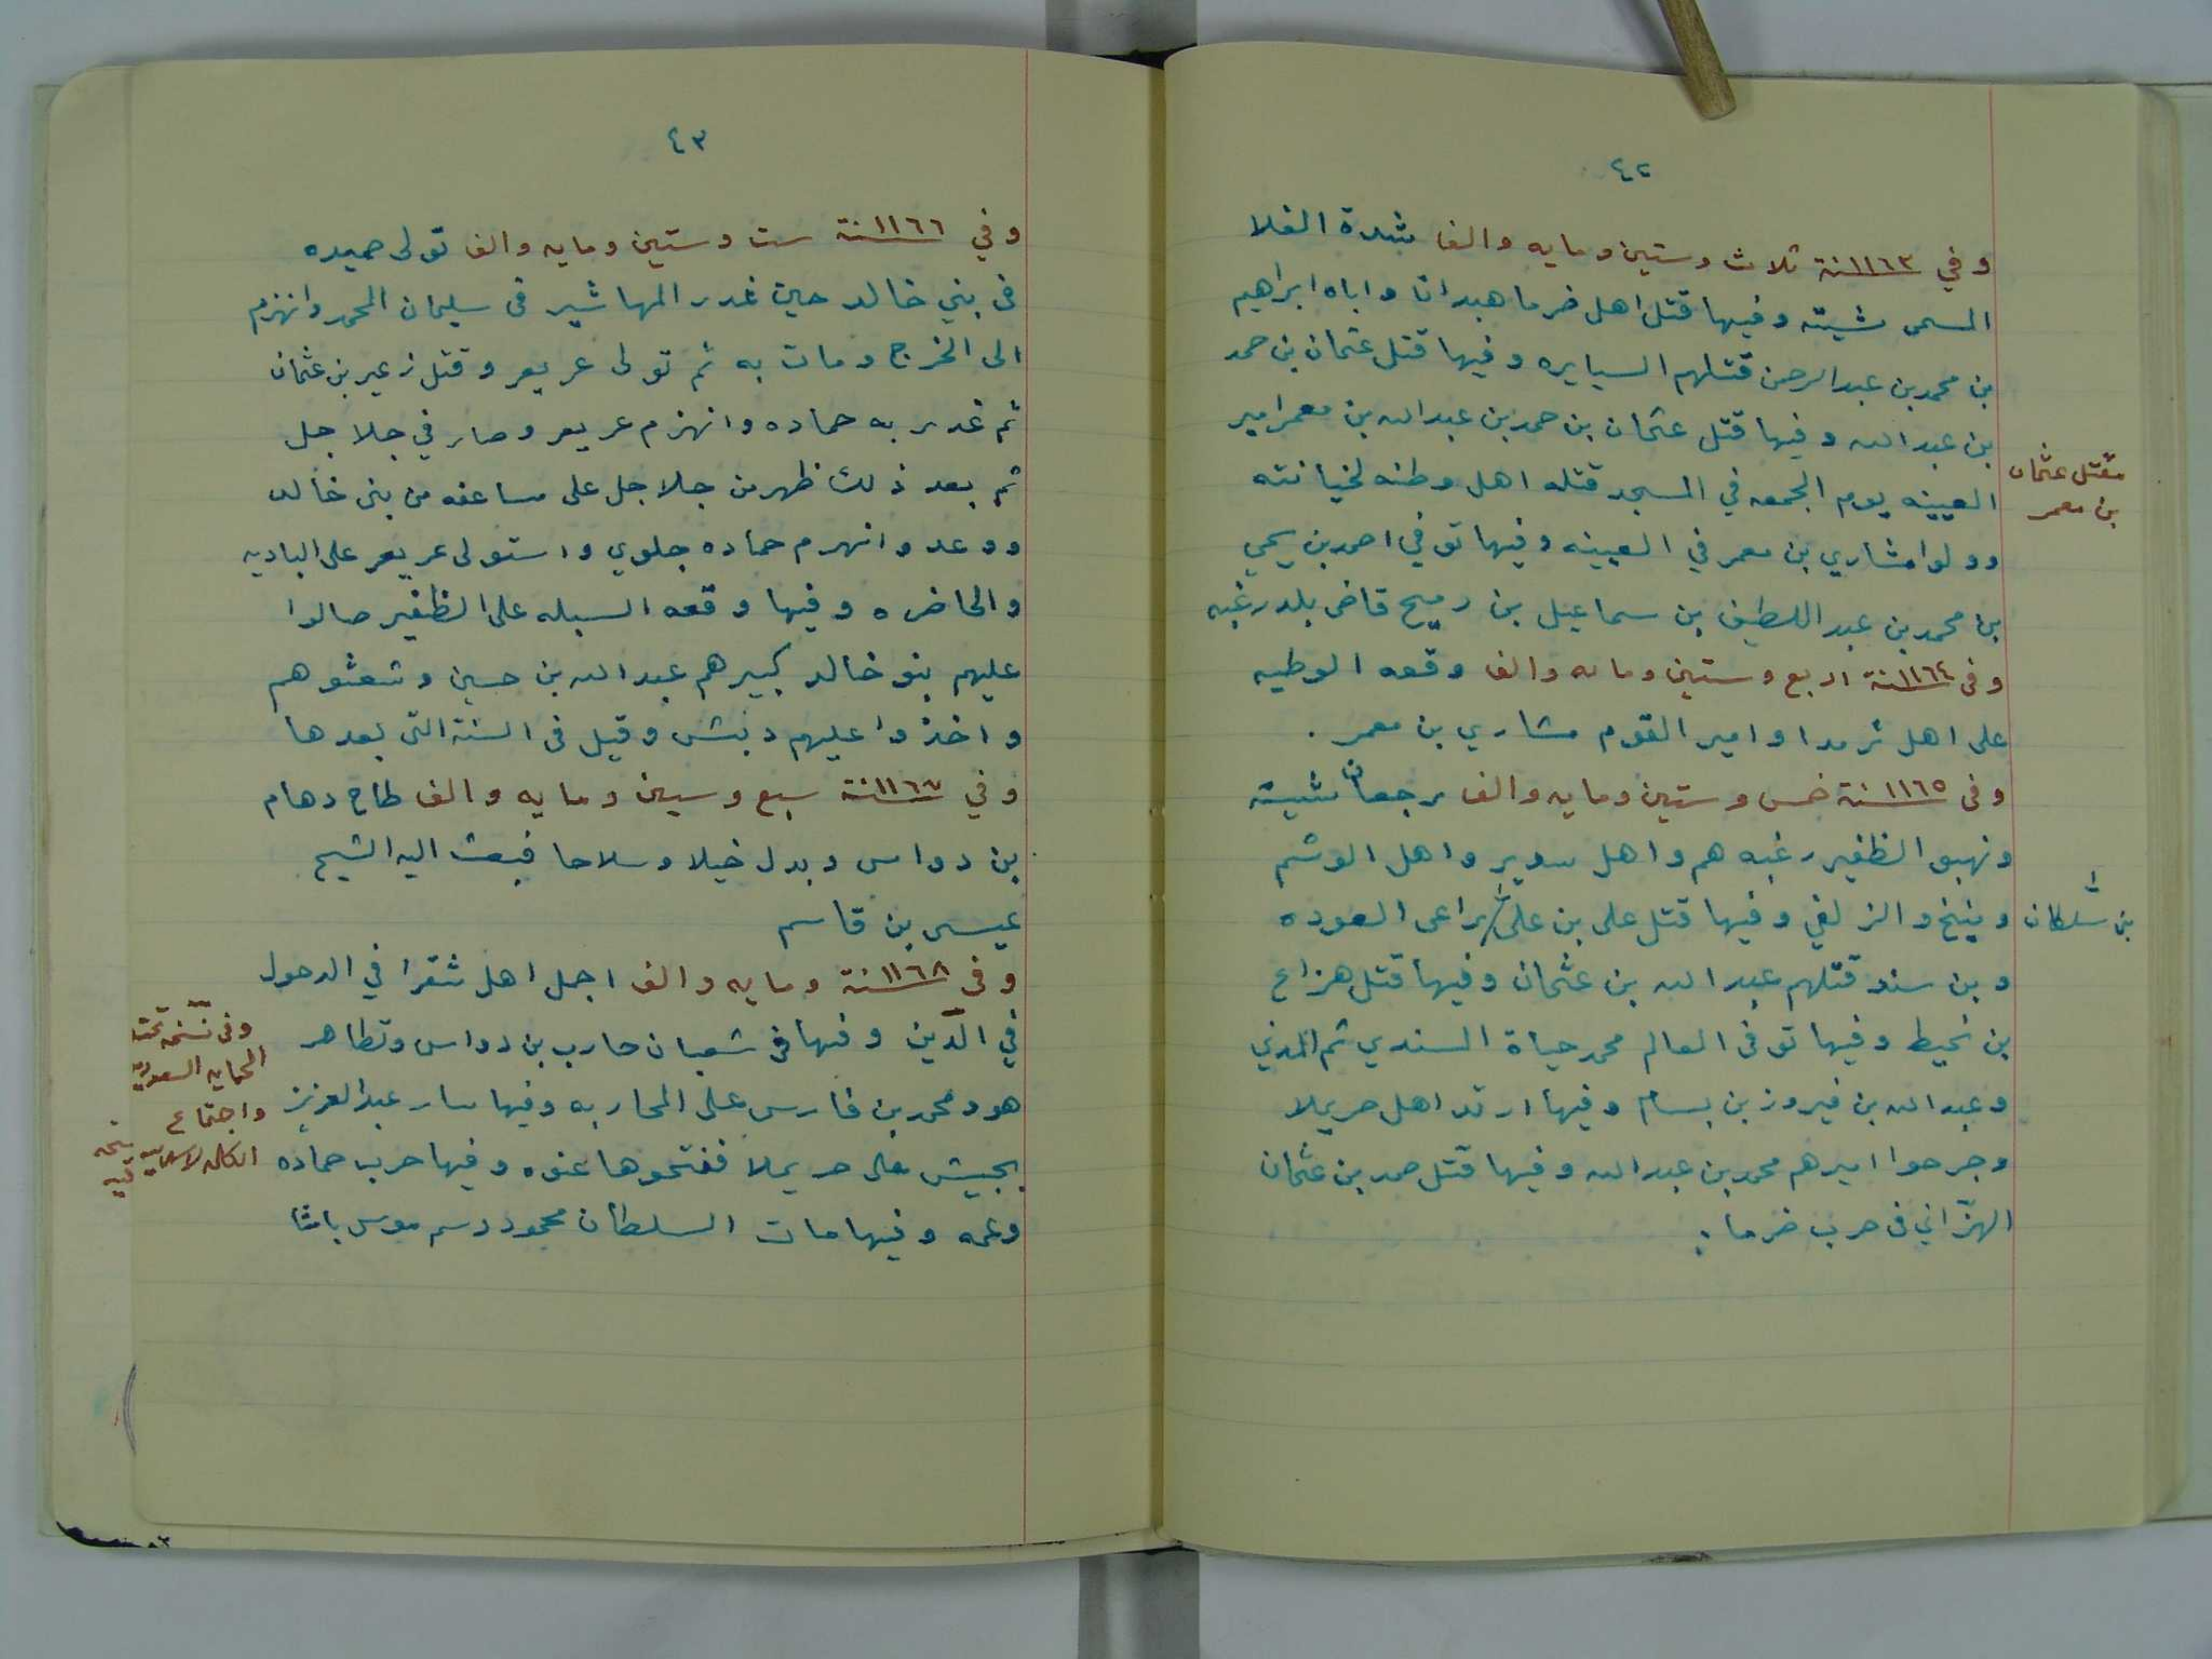 ٤٢
وفي ١١٦٣سنة ثلاث وستين ومايه والف شدة الغلا
المسمى شيته وفيها قتل اهل ضرما هبدانا واباه ابراهيم
بن محمد بن عبدالرحمن قتلهم السيايره وفيها قتل عثمان بن حمد
بن عبدالله وفيها قتل عثمان بن حمد بن عبدالله بن معمر امير
العيينه يوم الجمعه في المسجد قتله اهل وطنه لخيانته
وولوا مشاري بن معمر في العيينه وفيها توفي احمد بن يحيى
بن محمد بن عبداللطيف بن سماعيل بن رميح قاضي بلد رغبه
وفي ١١٦٤سنة اربع وستين ومايه والف وقعه الوطيه
على اهل ثرمدا وامير القوم مشاري بن معمر .
وفى ١١٦٥سنة خمس وستين ومايه والف رجعان شيته
ونهبو الظفير رغبه هم واهل سدير واهل الوشم
ومنيخ والزلفي وفيها قتل علي بن علي راعى العوده
وبن سند قتلهم عبدالله بن عثمان وفيها قتل هزاع
بن نحيط وفيها توفى العالم محمد حياة السندي ثم المدني
وعبدالله بن فيروز بن بسام وفيها ارتد اهل حريملا
وجرحوا اميرهم محمد بن عبدالله وفيها قتل حمد بن عثمان
الهزّاني في حرب ضرما .
مقتل عثمان
بن معمر
بن سلطان
٤٣
وفي ١١٦٦سنة ست وستين ومايه والف تولى حميده
في بني خالد حين غدر المهاشير في سليمان المحمد وانهزم
الى الخرج ومات به ثم تولى عريعر وقتل زعير بن عثمان
ثم غدر به حماده وانهزم عريعر وصار في جلاجل
ثم بعد ذلك ظهر من جلاجل على مساعفه من بني خالد
ووعد وانهزم حماده جلوي واستولى عريعر على الباديه
والحاضره وفيها وقعه السبله على الظفير صالوا
عليهم بنو خالد كبيرهم عبدالله بن حسين وشعثوهم
واخذوا عليهم دبش وقيل في السنة التي بعدها
وفي ١١٦٧سنة سبع وستين ومايه والف طاح دهام
بن دواس وبدل خيلا وسلاحا فبعث اليه الشيخ
عيسى بن قاسم
وفى ١١٦٨سنة ومايه والف اجمل اهل شقرا في الدخول
في الدّين وفيها في شعبان حارب بن دواس وتظاهر
هو ومحمد بن فارس على المحاربه وفيها سار عبدالعزيز
بجيش على حريملا ففتحوها عنوه وفيها حرب حماده
وعمه وفيها مات السلطان محمود دسم موسى باشا
وفى نسخة تحت
الحمايه السعوديه
واجتماع
الكلمه الاسلاميه